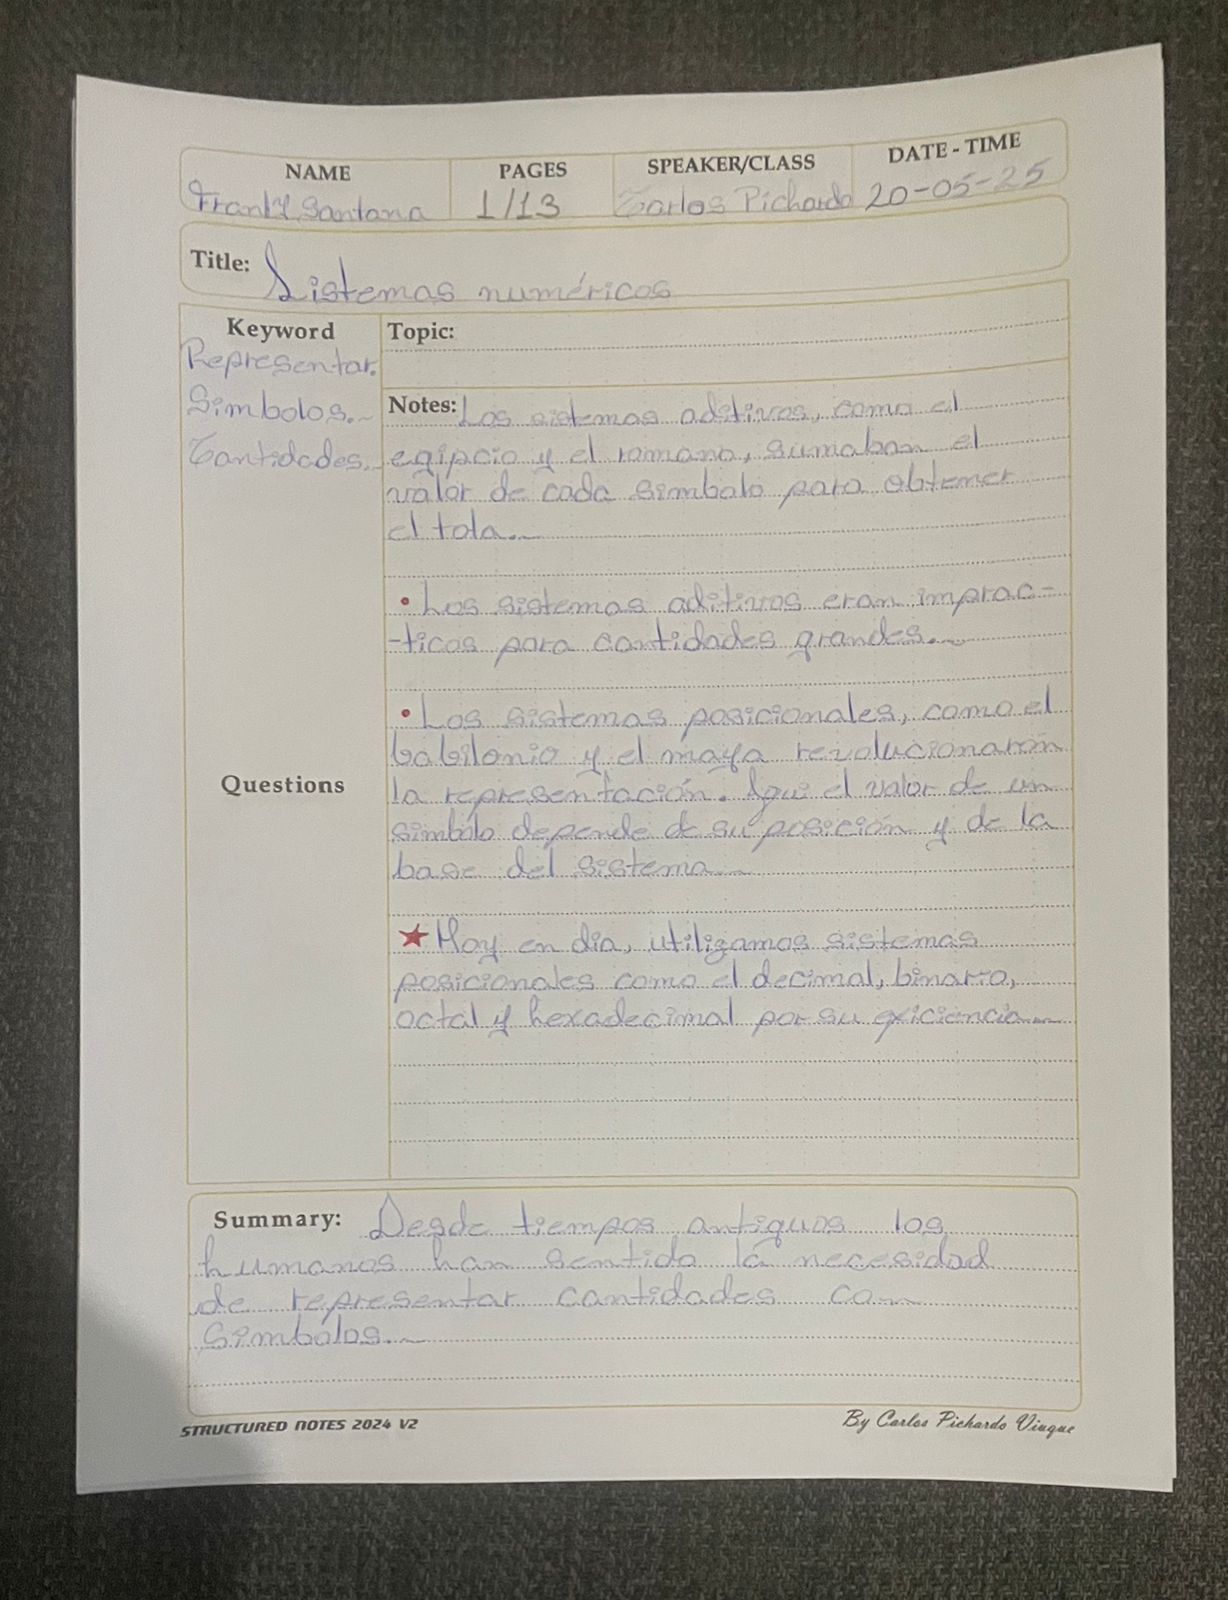 NAME PAGES SPEAKER/CLASS DATE - TIME
Frankl Santana 1/13 Carlos Pichardo 20-05-25
Title: Sistemas numéricos
Keyword Topic:
Representar.
Simbolos. Notes: Los sistemas aditivos, como el
Cantidades. egipcio y el romano, sumaban el
valor de cada simbolo para obtener
el tola.
• Los sistemas aditivos eran imprac-
-ticos para cantidades grandes.
• Los sistemas posicionales, como el
babilonio y el maya revolucionaron
Questions
la representación. Aqui el valor de un
simbolo depende de su posición y de la
base del sistema
★ Hoy en dia, utilizamos sistemas
posicionales como el decimal, binario,
octal y hexadecimal por su eficiencia
Summary: Desde tiempos antiguos los
humanos han sentido la necesidad
de representar cantidades con
Simbolos.
STRUCTURED NOTES 2024 V2 By Carlos Pichardo Viuque